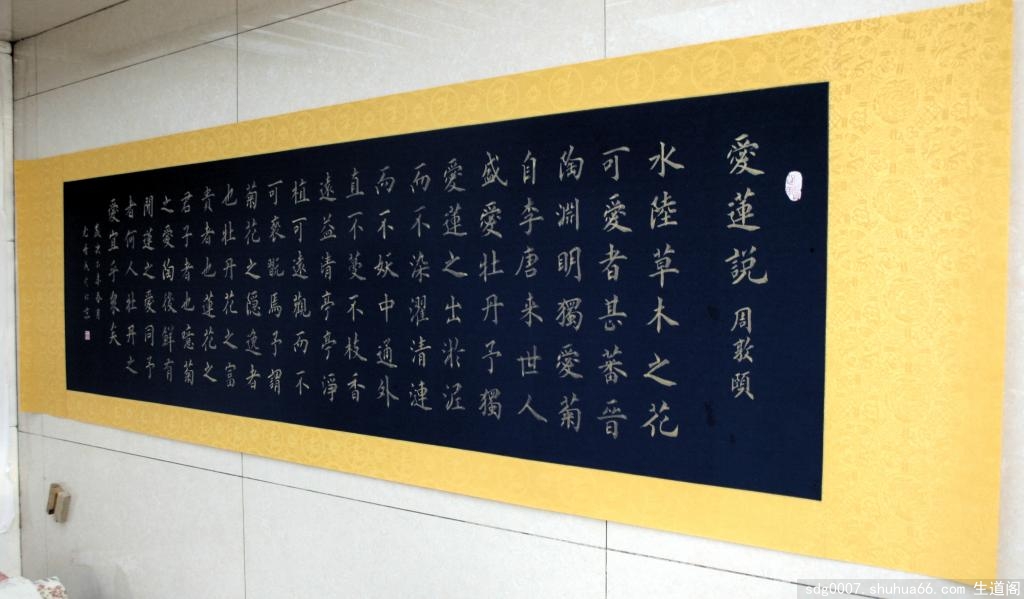 愛蓮説 周敦頤
水陸草木之花
可愛者甚蕃晉
陶淵明獨愛菊
自李唐来世人
盛愛牡丹予獨
愛蓮之出淤泥
而不染濯清漣
而不妖中通外
直不蔓不枝香
遠益清亭亭淨
植可遠觀而不
可褻翫焉予謂
菊花之隱逸者
也牡丹花之富
貴者也蓮花之
君子者也噫菊
之愛陶後鮮有
聞蓮之愛同予
者何人牡丹之
愛宜乎衆矣
sdg0007.shuhua66.com 生道阁